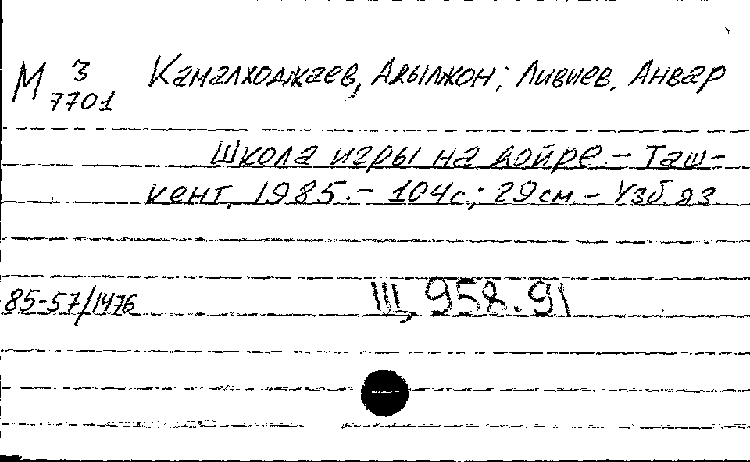 М 3 Камалходжаев, Адылжон; Ливиев, Анвар
7701
Школа игры на дойре. – Таш-
кент, 1985. – 104с.; 29см. – Узб. яз.
85-57/1476 III, 958.91